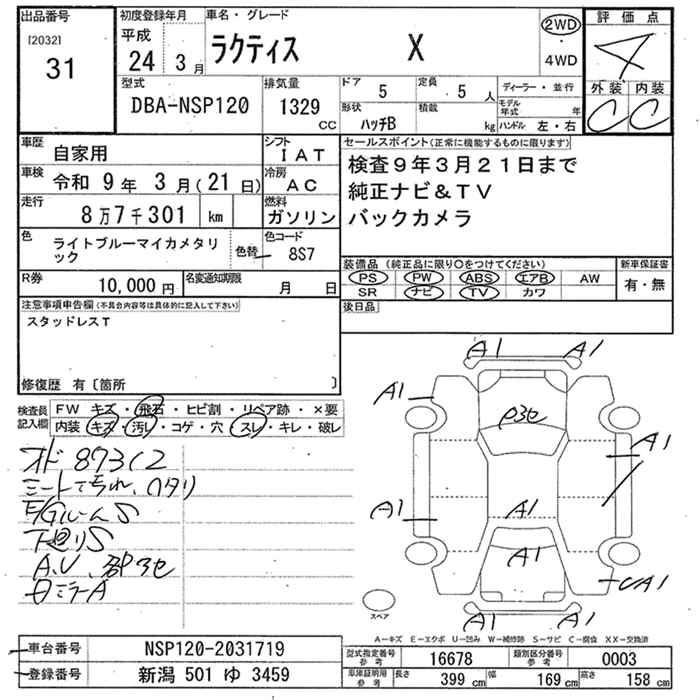 出品番号 初度登録年月 車名・グレード 評価点
[2032] 31
平成 24 3月 ラクティス X 2WD ・ 4WD
4
型式 排気量 ドア 5 定員 5人 ディーラー・並行 外装 内装
DBA-NSP120 1329 CC 形状 ハッチB 積載 kg モデル年式 年 ハンドル 左・右 C C
車歴 自家用 シフト IAT セールスポイント(正常に機能するものに限ります)
車検 令和 9年 3月(21日) 冷房 AC 検査9年3月21日まで
走行 8万7千301 km 燃料 ガソリン 純正ナビ&TV
バックカメラ
色 ライトブルーマイカメタリック 色替 色コード 8S7
装備品 (純正品に限り○をつけてください) 新車保証書
PS PW ABS エアB AW 有・無
SR ナビ TV カワ
R券 10,000円 名変通知期限 月 日
後日品
注意事項申告欄(不具合内容等は具体的に記入して下さい)
スタッドレスT
修復歴 有〔箇所 〕
検査員記入欄 FW キズ・飛石・ヒビ割・リペア跡・×要
内装 キズ・汚レ・コゲ・穴・スレ・キレ・破レ
オド 87312
シート
E/GルームS
下廻りS
A.V
ミラーA
A1 A1
A1
A1
A1 A1
A1
A1
A1 A1
スペア
A－キズ E－エクボ U－凹み W－補修跡 S－サビ C－腐食 XX－交換済
車台番号 NSP120-2031719
登録番号 新潟 501 ゆ 3459
型式指定番号 参考 16678 類別区分番号 参考 0003
車庫証明用 参考 長さ 399 cm 幅 169 cm 高さ 158 cm